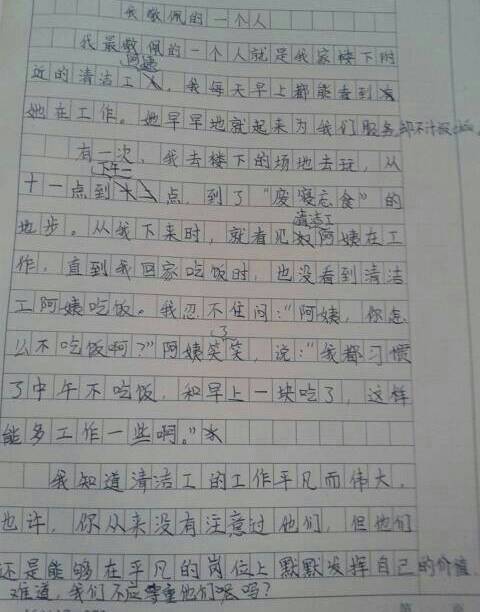 我敬佩的一个人
我最敬佩的一个人就是我家楼下附
近的清洁工阿姨，我每天早上都能看到
她在工作。她早早地就起来为我们服务却不计报酬。
有一次，我去楼下的场地去玩，从
十一点到下午二点，到了“废寝忘食”的
地步。从我下来时，就看见清洁工阿姨在工
作，直到我回家吃饭时，也没看到清洁
工阿姨吃饭。我忍不住问：“阿姨，你怎
么不吃饭啊？”阿姨笑了笑，说：“我都习惯
了中午不吃饭，和早上一块吃了，这样
能多工作一些啊。”
我知道清洁工的工作平凡而伟大，
也许，你从来没有注意过他们，但他们
还是能够在平凡的岗位上默默发挥自己的价值，
难道，我们不应尊重他们吗？